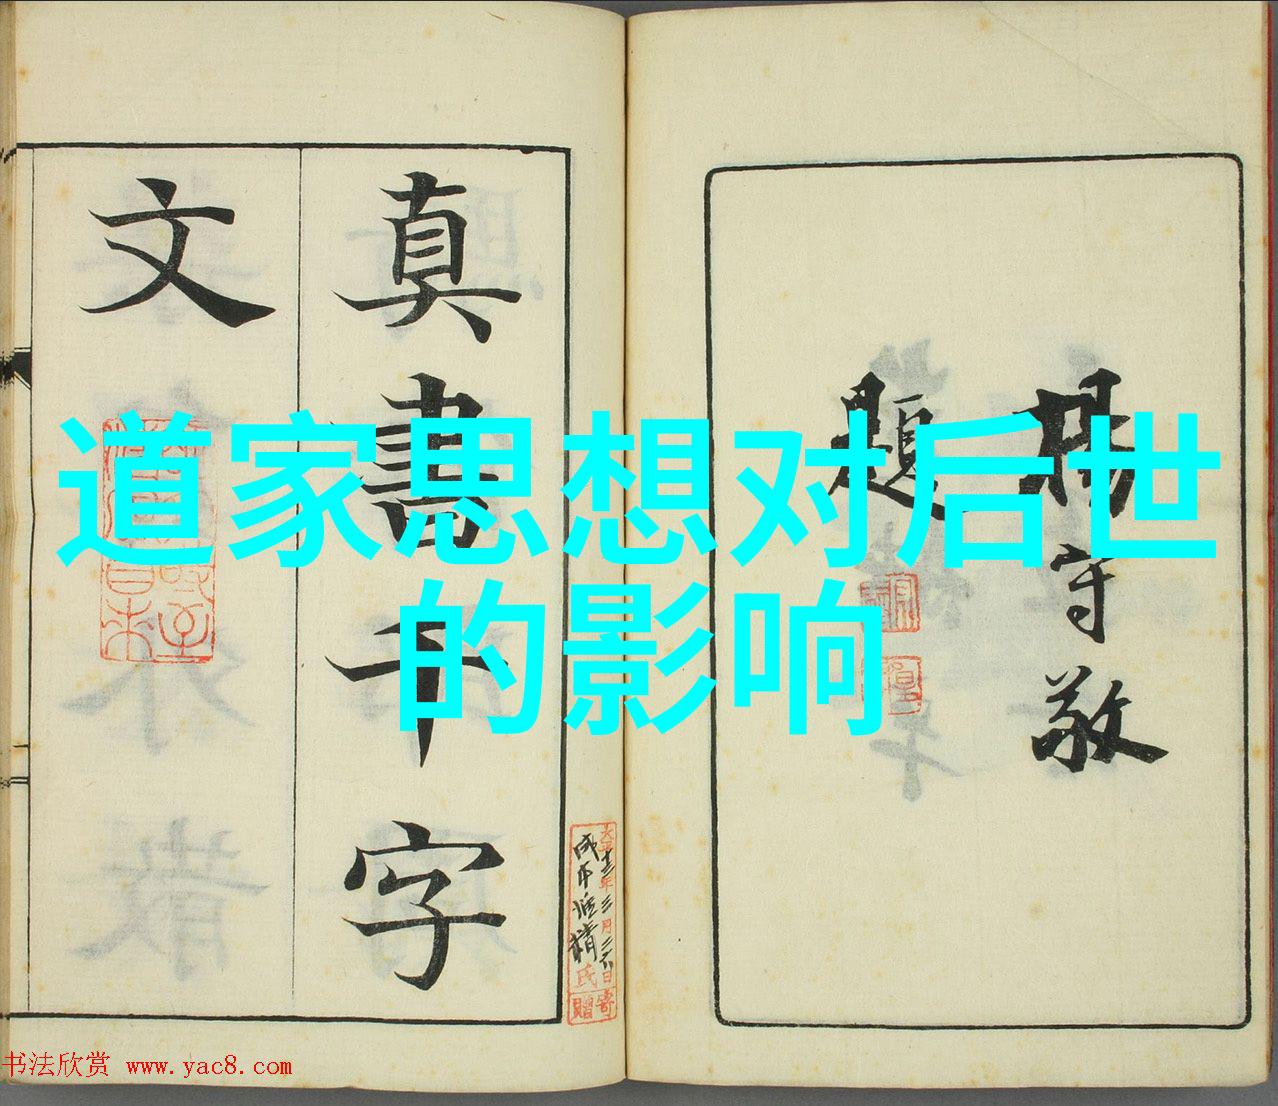 道家思想对后世
的影响
楊守敬
題
真書千字
文
氏
贈
书法欣赏 www.yac8.com